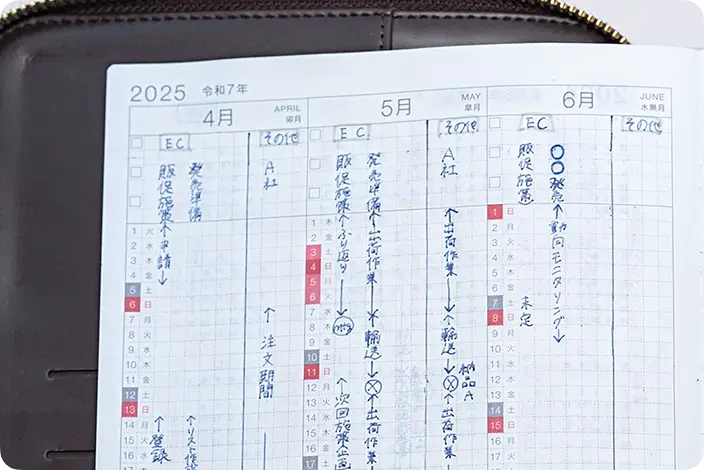 2025 令和7年
4月 APRIL 卯月
EC
その他
販促施策
発売準備
A社
1 火
2 水
3 木
4 金
5 土
6 日
7 月
8 火
9 水
10 木
11 金
12 土
13 日
14 月
15 火
16 水
申請
注文期間
登録
リスト作
5月 MAY 皐月
EC
その他
販促施策
発売準備
A社
1 木
2 金
3 土
4 日
5 月
6 火
7 水
8 木
9 金
10 土
11 日
12 月
13 火
14 水
15 木
16 金
17 土
ふり返り
出荷作業
輸送
出荷作業
次回施策企画
出荷作業
輸送
納品A
出荷作業
6月 JUNE 水無月
EC
その他
販促施策
〇〇発売
1 日
2 月
3 火
4 水
5 木
6 金
7 土
8 日
9 月
10 火
11 水
12 木
13 金
14 土
15 日
16 月
17 火
動向モニタリング
未定